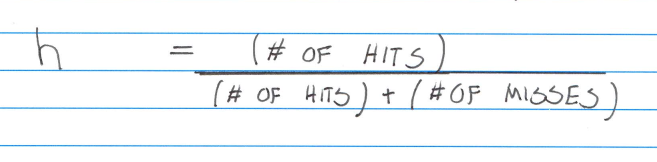 h = (# OF HITS)
(# OF HITS) + (# OF MISSES)